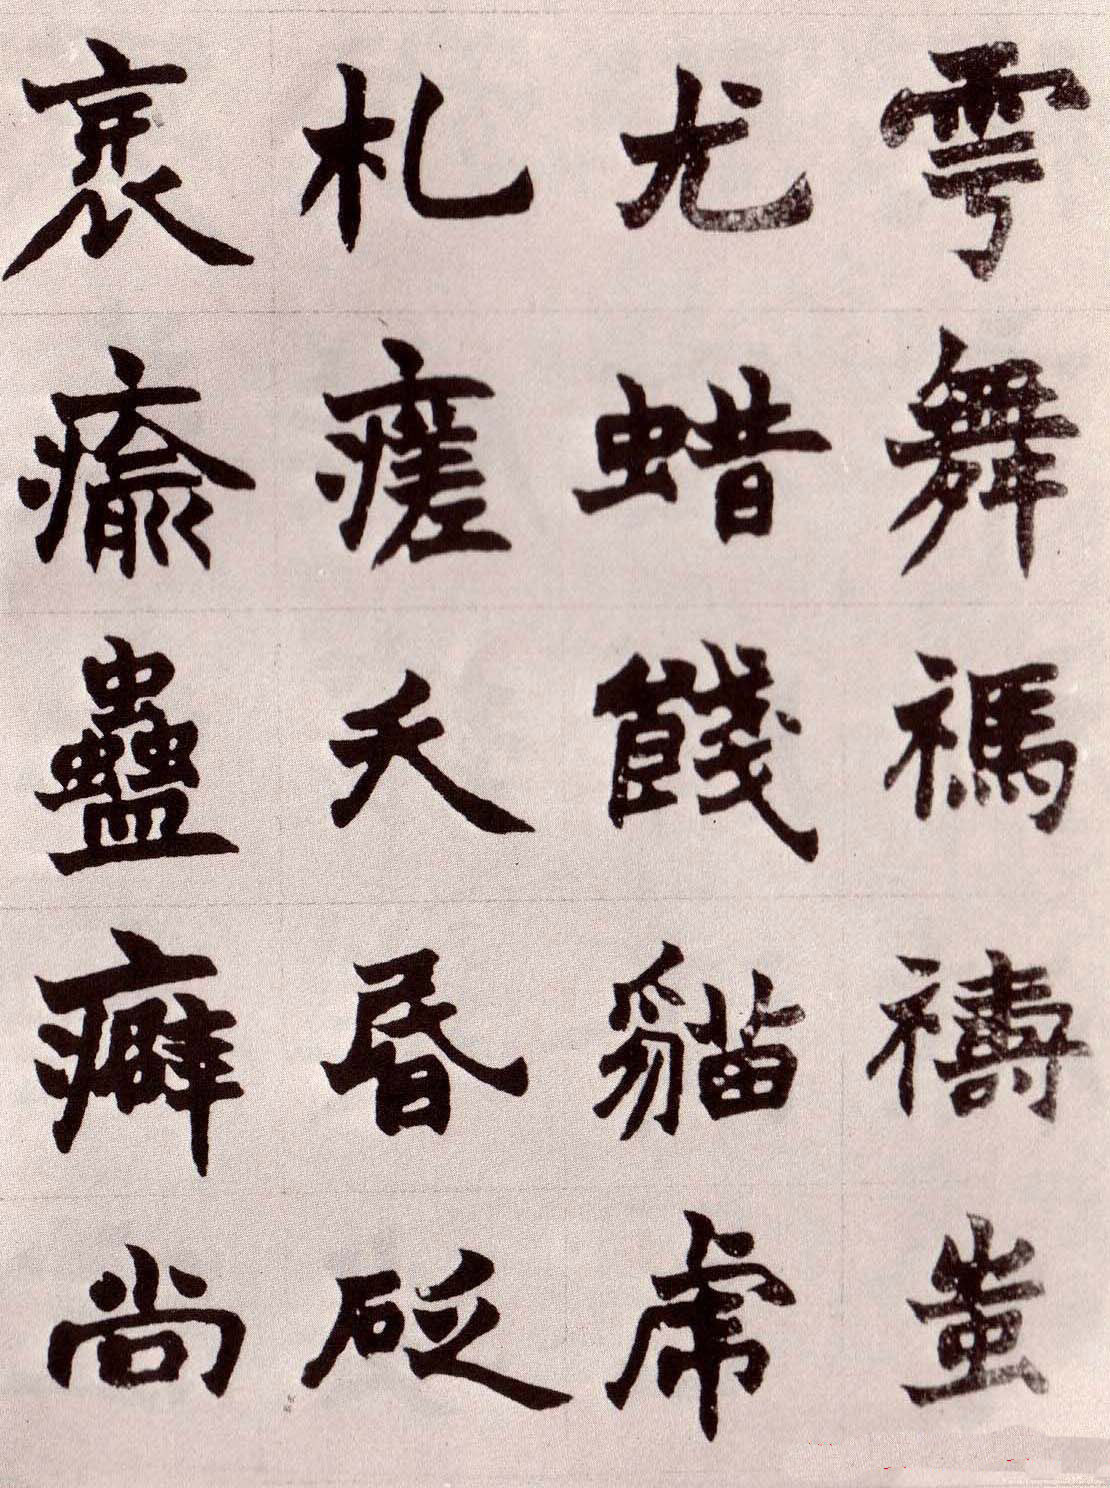 雩舞禡禱蚩
尤蜡餞貓虎
札瘥夭昏砭
衰瘉蠱癖尚